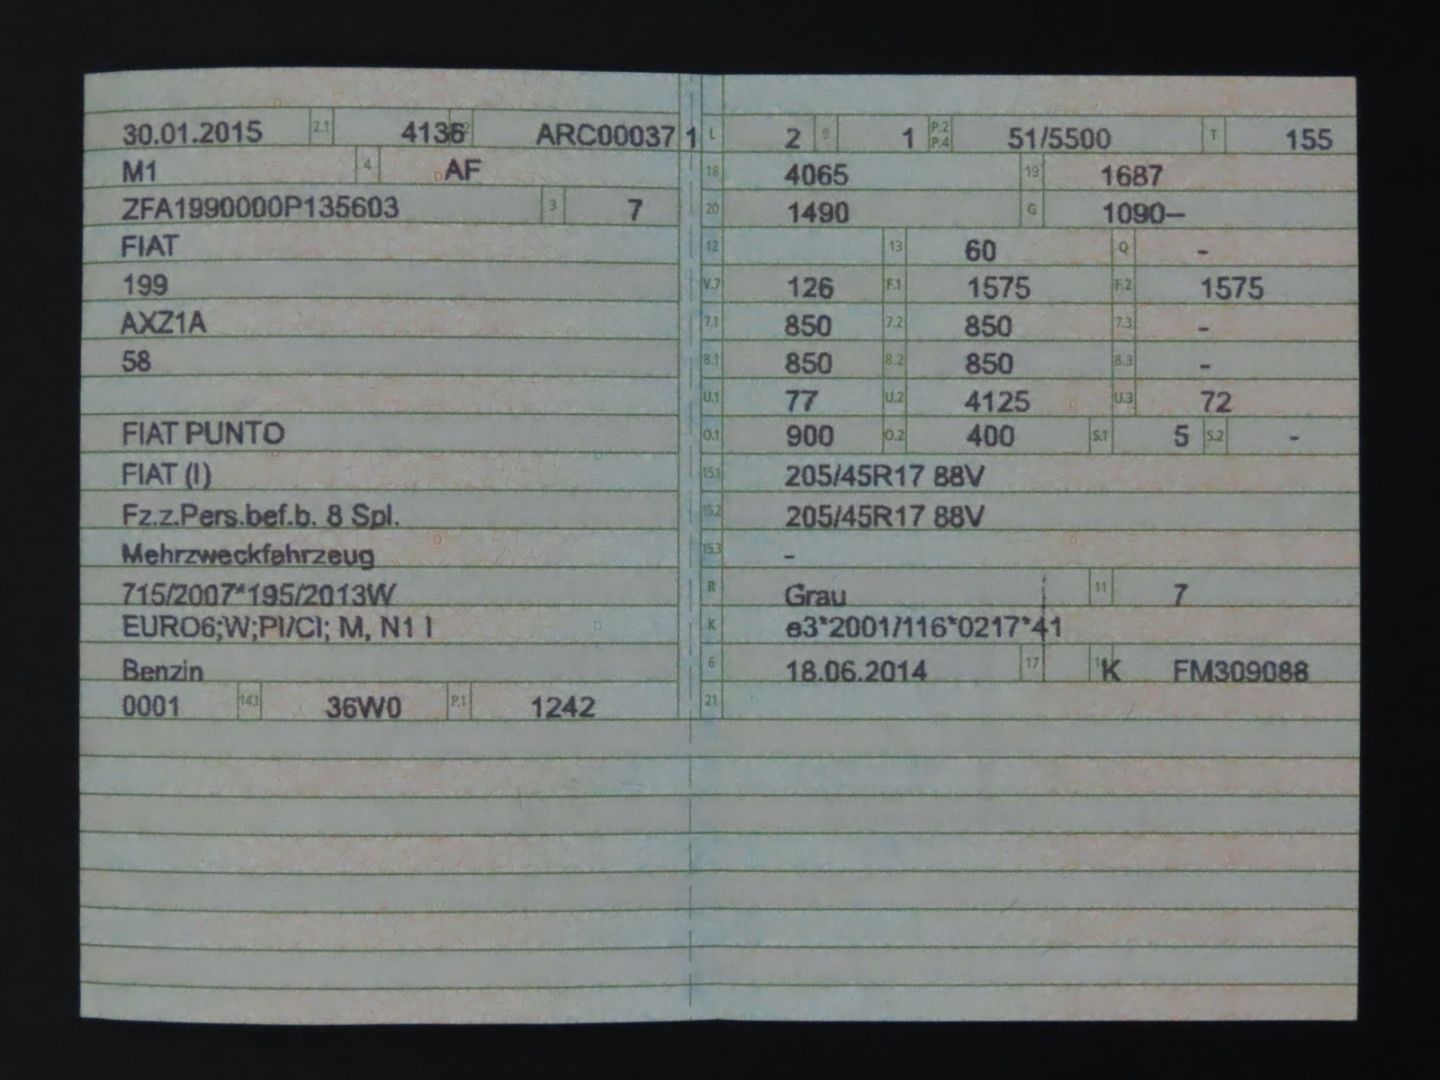 30.01.2015 2.1 4136 2.2 ARC00037 1 L 2 9 1 P.2 P.4 51/5500 T 155
M1 4 AF 18 4065 19 1687
ZFA1990000P135603 3 7 20 1490 G 1090–
FIAT 12 13 60 Q -
199 V.7 126 F.1 1575 F.2 1575
AXZ1A 7.1 850 7.2 850 7.3 -
58 8.1 850 8.2 850 8.3 -
U.1 77 U.2 4125 U.3 72
FIAT PUNTO O.1 900 O.2 400 S.1 5 S.2 -
FIAT (I) 15.1 205/45R17 88V
Fz.z.Pers.bef.b. 8 Spl. 15.2 205/45R17 88V
Mehrzweckfahrzeug 15.3 –
715/2007*195/2013W R Grau 11 7
EURO6;W;PI/CI; M, N1 I K e3*2001/116*0217*41
Benzin 6 18.06.2014 17 16 K FM309088
0001 14.3 36W0 P.1 1242 21